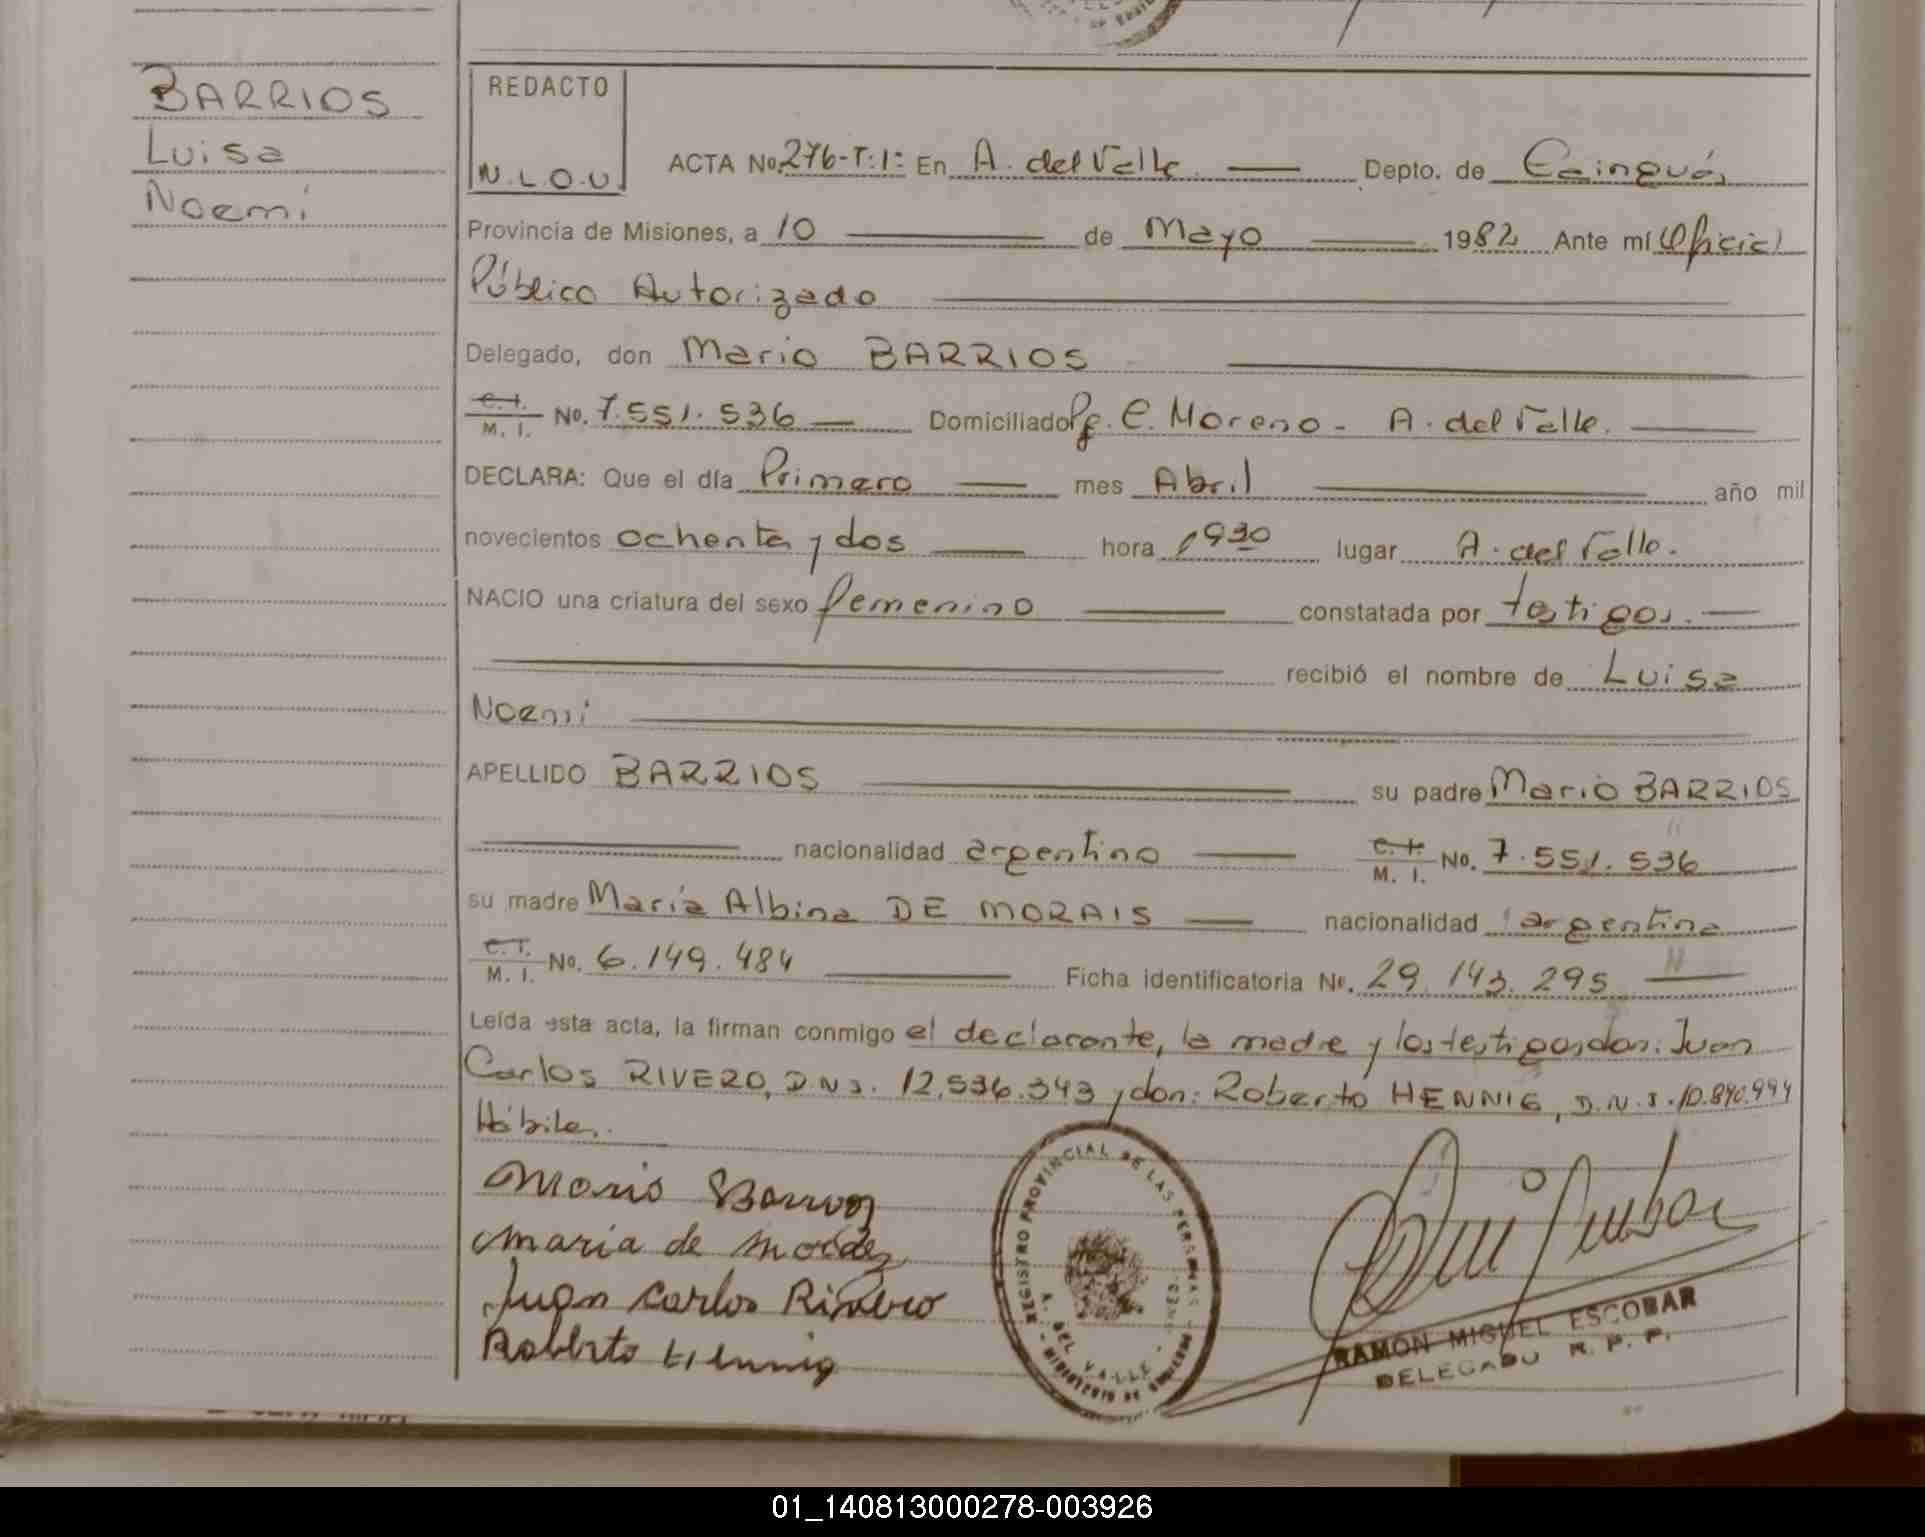 BARRIOS
Luisa
Noemí
REDACTO
N.L.O.U
ACTA No. 276-T:1: En A. del Valle Depto. de Cainguás
Provincia de Misiones, a 10 de Mayo 1982 Ante mí Oficial
Público Autorizado
Delegado, don Mario BARRIOS
C. I.
M. I. No. 7.551.536 Domiciliado Pje. C. Moreno - A. del Valle.
DECLARA: Que el día Primero mes Abril año mil
novecientos ochenta y dos hora 1930 lugar A. del Valle.
NACIO una criatura del sexo femenino constatada por testigos.
recibió el nombre de Luisa
Noemí
APELLIDO BARRIOS su padre Mario BARRIOS
nacionalidad argentino C. I. M. I. No. 7.551.536
su madre María Albina DE MORAIS nacionalidad argentina
C. I.
M. I. No. 6.149.484 Ficha identificatoria Nº. 29.143.295
Leída esta acta, la firman conmigo el declarante, la madre y los testigos don: Juan
Carlos RIVERO, D.N.I. 12.536.343 y don: Roberto HENNIG, D.N.I. 10.890.994
Hábiles.
Mario Barrios
Maria de
Juan Carlos Rivero
Roberto Hennig
REGISTRO PROVINCIAL DE LAS PERSONAS
A. DEL VALLE
RAMON MIGUEL ESCOBAR
DELEGADO R. P. P.
01_140813000278-003926